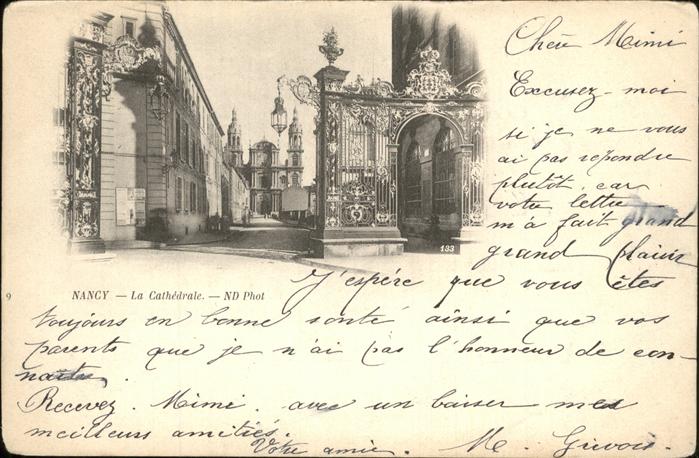 Chère Mimi
Excusez-moi
si je ne vous
ai pas repondre
plutôt, car
votre lettre
m'a fait grand
grand plaisir
133
9 NANCY — La Cathédrale. — ND Phot
J'espére que vous êtes
toujours en bonne santé ainsi que vos
parents que je n'ai pas l'honneur de con-
naitre.
Recevez. Mimi. avec un baiser mes
meilleurs amitiés.
Votre amie. M.